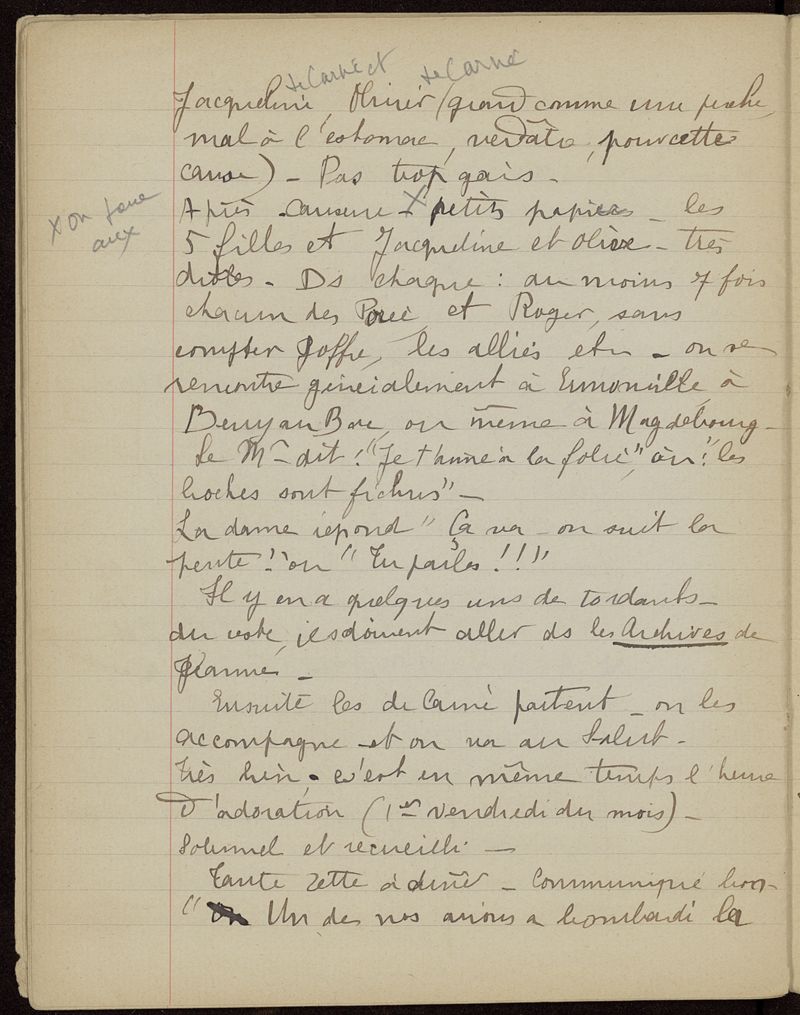 de Carné et de Carné
Jacqueline, Olivier (grand comme une perche,
mal à l'estomac, verdâtre, pour cette
cause) - Pas trop gais -
Après - causerie - X petits papiers - les
x on joue
aux
5 filles et Jacqueline et Olivier - très
drôles - Ds chaque : au moins 7 fois
chacun des et Roger, sans
compter Joffre, les alliés etc - on se
rencontre généralement à Ermonville, à
Berry au Bac, ou même à Magdebourg -
Le Mr dit : "Je t'aime à la folie", ou : "les
boches sont fichus" -
La dame répond "Ça va - on suit la
pente !" ou "Tu parles !!!"
Il y en a quelques uns de tordants -
du reste, ils doivent aller ds les Archives de
Jeanne -
Ensuite les de Carné partent - on les
accompagne et on va au Salut -
Très bien - c'est en même temps l'heure
d'adoration (1er vendredi du mois) -
Solennel et recueilli -
Tante Zette à dîner - Communiqué bon -
" Un de nos avions a bombardé la